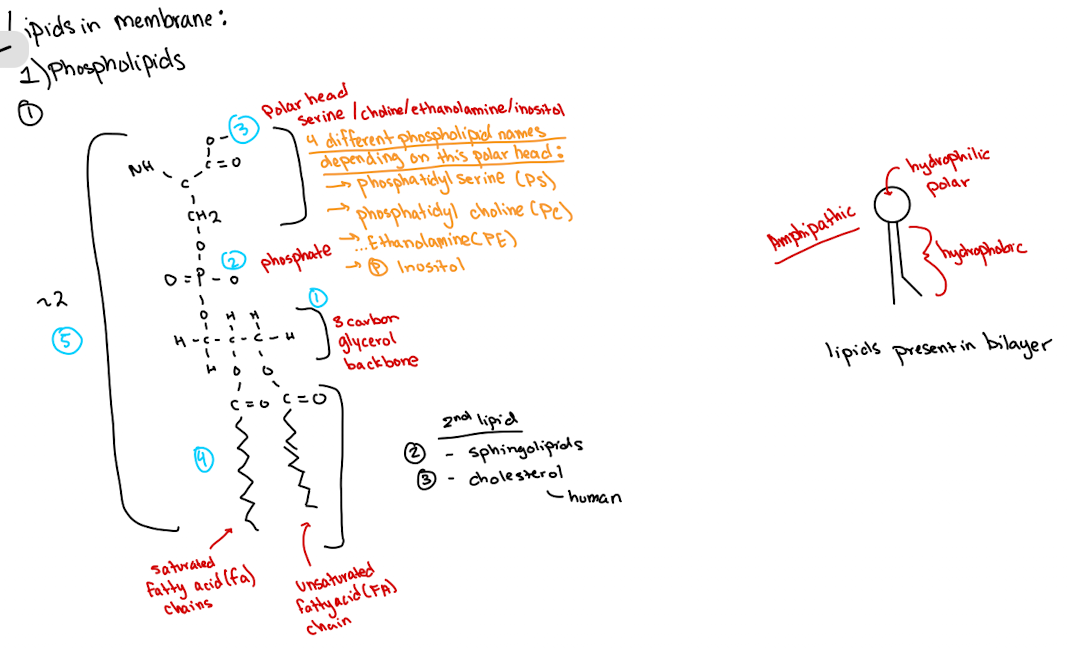 Lipids in membrane:
1) Phospholipids
①
Polar head
serine / choline/ethanolamine/inositol
③
4 different phospholipid names
depending on this polar head:
→ phosphatidyl serine (PS)
→ phosphatidyl choline (PC)
→ ... Ethanolamine (PE)
→ Ⓟ Inositol
O -
C = O
NH
C
CH2
O
② phosphate
O = P - O
O H H
①
H - C - C - C - H
H O O
3 carbon
glycerol
backbone
C = O C = O
~2
⑤
④
saturated
fatty acid (fa)
chains
unsaturated
fatty acid (FA)
chain
2nd lipid
② - sphingolipids
③ - cholesterol
human
hydrophilic
polar
Amphipathic
hydrophobic
lipids present in bilayer